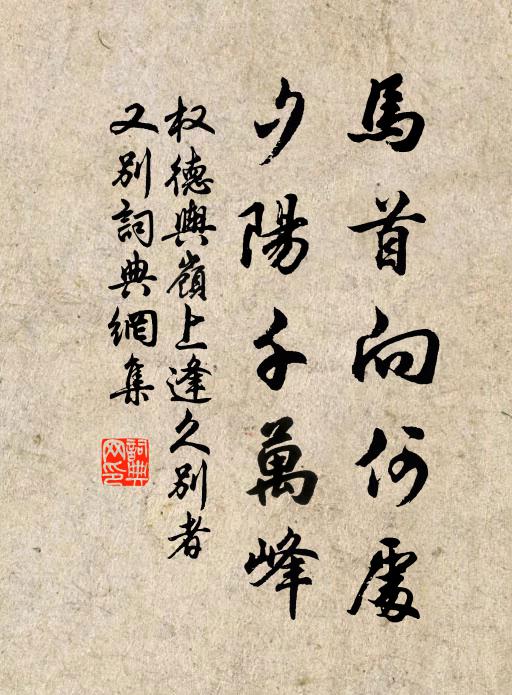 馬首向何處
夕陽千萬峰
权德輿嶺上逢久別者
又別詞典網集
詞典
网印